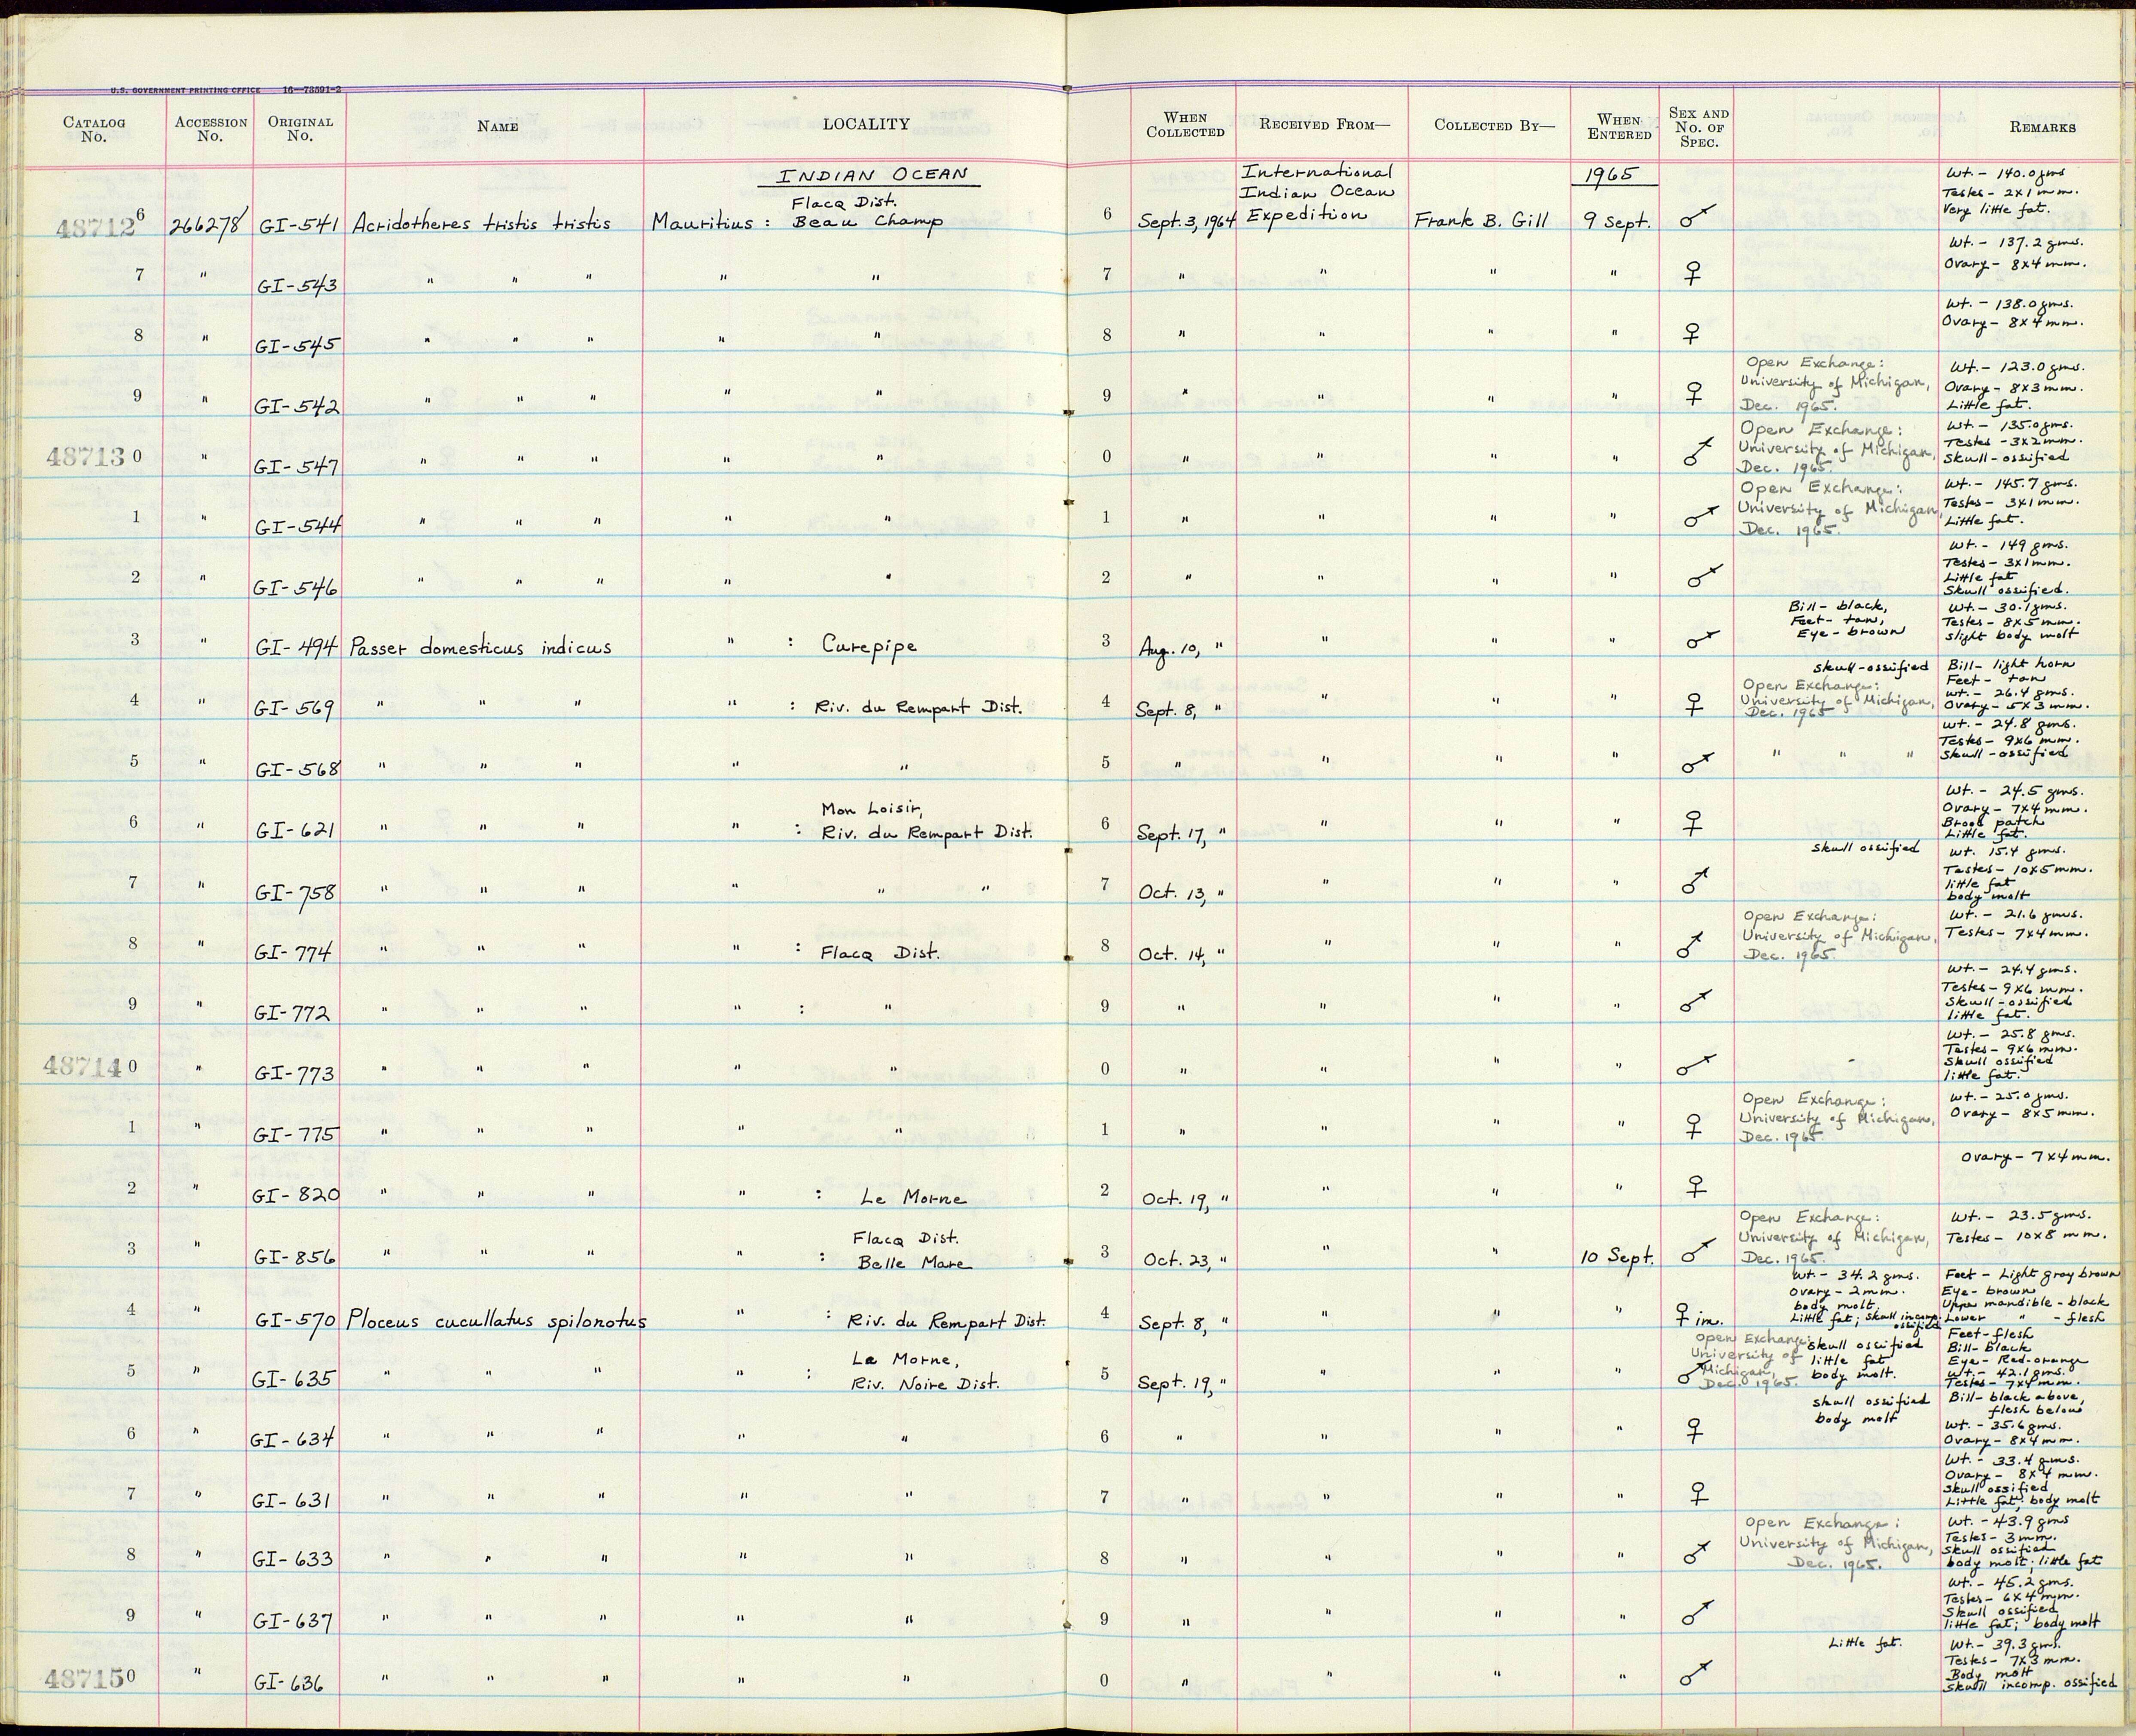 U.S. GOVERNMENT PRINTING OFFICE 16—73591-2
CATALOG No. ACCESSION No. ORIGINAL No. NAME LOCALITY WHEN COLLECTED RECEIVED FROM— COLLECTED BY— WHEN ENTERED SEX AND No. OF SPEC. REMARKS
INDIAN OCEAN International Indian Ocean Expedition 1965
487126 266278 GI-541 Acridotheres tristis tristis Mauritius : Flacq Dist. Beau Champ 6 Sept. 3, 1964 Frank B. Gill 9 Sept. ♂ Wt. - 140.0 gms Testes - 2x1 mm. Very little fat.
7 " GI-543 " " " " " 7 " " " " ♀ Wt. - 137.2 gms. Ovary - 8x4 mm.
8 " GI-545 " " " " " 8 " " " " ♀ Wt. - 138.0 gms. Ovary - 8x4 mm.
9 " GI-542 " " " " " 9 " " " " ♀ Open Exchange: University of Michigan, Dec. 1965. Wt. - 123.0 gms. Ovary - 8x3 mm. Little fat.
487130 " GI-547 " " " " " 0 " " " " ♂ Open Exchange: University of Michigan, Dec. 1965. Wt. - 135.0 gms. Testes - 3x2 mm. Skull - ossified
1 " GI-544 " " " " " 1 " " " " ♂ Open Exchange: University of Michigan, Dec. 1965. Wt. - 145.7 gms. Testes - 3x1 mm. Little fat.
2 " GI-546 " " " " " 2 " " " " ♂ Wt. - 149 gms. Testes - 3x1 mm. Little fat Skull ossified.
3 " GI-494 Passer domesticus indicus " : Curepipe 3 Aug. 10, " " " " ♂ Bill - black, Feet - tan, Eye - brown Wt. - 30.1 gms. Testes - 8x5 mm. slight body molt
4 " GI-569 " " " " : Riv. du Rempart Dist. 4 Sept. 8, " " " " ♀ skull-ossified Open Exchange: University of Michigan, Dec. 1965 Bill - light horn Feet - tan Wt. - 26.4 gms. Ovary - 5x3 mm.
5 " GI-568 " " " " " 5 " " " " ♂ " " " Wt. - 24.8 gms. Testes - 9x6 mm. Skull - ossified
6 " GI-621 " " " " : Mon Loisir, Riv. du Rempart Dist. 6 Sept. 17, " " " " ♀ Wt. - 24.5 gms. Ovary - 7x4 mm. Brood patch Little fat.
7 " GI-758 " " " " " " 7 Oct. 13, " " " " ♂ skull ossified Wt. 15.4 gms. Testes - 10x5 mm. little fat body molt
8 " GI-774 " " " " : Flacq Dist. 8 Oct. 14, " " " " ♂ Open Exchange: University of Michigan, Dec. 1965. Wt. - 21.6 gms. Testes - 7x4 mm.
9 " GI-772 " " " " : " 9 " " " " ♂ Wt. - 24.4 gms. Testes - 9x6 mm. Skull - ossified little fat.
487140 " GI-773 " " " " " 0 " " " " ♂ Wt. - 25.8 gms. Testes - 9x6 mm. Skull ossified little fat.
1 " GI-775 " " " " " 1 " " " " ♀ Open Exchange: University of Michigan, Dec. 1965 Wt. - 25.0 gms. Ovary - 8x5 mm.
2 " GI-820 " " " " : Le Morne 2 Oct. 19, " " " " ♀ Ovary - 7x4 mm.
3 " GI-856 " " " " : Flacq Dist. Belle Mare 3 Oct. 23, " " " 10 Sept. ♂ Open Exchange: University of Michigan, Dec. 1965. Wt. - 23.5 gms. Testes - 10x8 mm.
4 " GI-570 Ploceus cucullatus spilonotus " : Riv. du Rempart Dist. 4 Sept. 8, " " " " ♀ im. Wt. - 34.2 gms. Ovary - 2mm. body molt. Little fat; skull incomp. ossified Feet - Light gray brown Eye - brown Upper mandible - black Lower " - flesh
5 " GI-635 " " " " : La Morne, Riv. Noire Dist. 5 Sept. 19, " " " " ♂ Open Exchange: University of Michigan, Dec. 1965. skull ossified little fat body molt. Feet - flesh Bill - black Eye - Red-orange Wt. - 42.1 gms. Testes - 7x4 mm.
6 " GI-634 " " " " " 6 " " " " ♀ skull ossified body molt Bill - black above, flesh below Wt. - 35.6 gms. Ovary - 8x4 mm.
7 " GI-631 " " " " " 7 " " " " ♀ Wt. - 33.4 gms. Ovary - 8x4 mm. Skull ossified Little fat; body molt
8 " GI-633 " " " " " 8 " " " " ♂ Open Exchange: University of Michigan, Dec. 1965. Wt. - 43.9 gms Testes - 3mm. Skull ossified body molt; little fat
9 " GI-637 " " " " " 9 " " " " ♂ Wt. - 45.2 gms. Testes - 6x4 mm. Skull ossified little fat; body molt
487150 " GI-636 " " " " " 0 " " " " ♂ Little fat. Wt. - 39.3 gms. Testes - 7x3 mm. Body molt Skull incomp. ossified